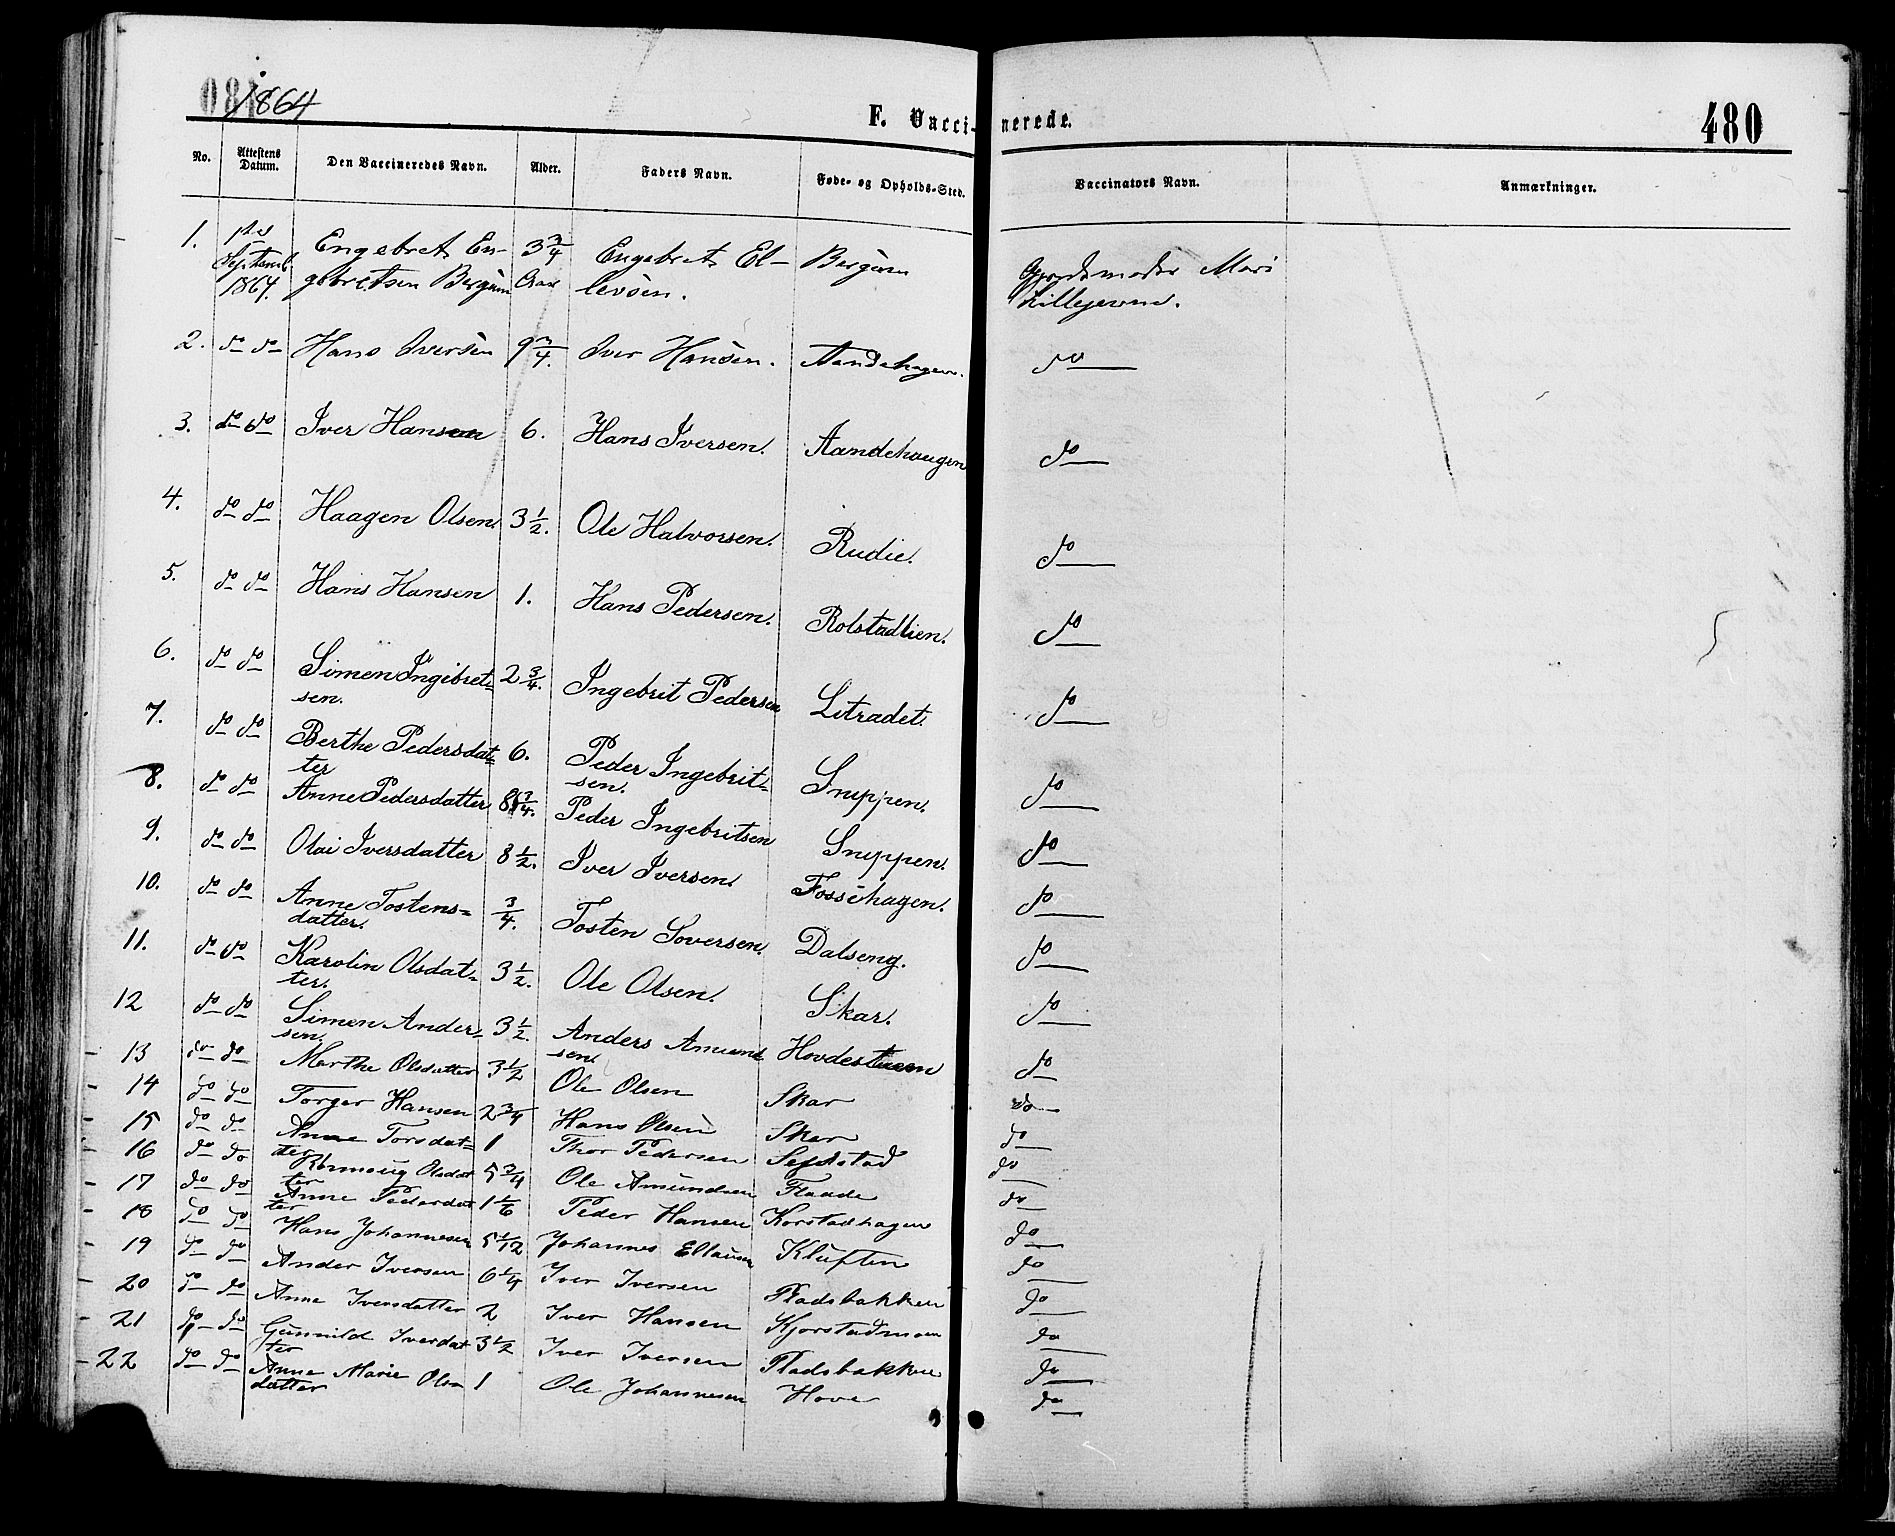 1864
F. Vaccinerede.
480
No. Attestens Datum. Den Vaccineredes Navn. Alder. Faders Navn. Føde- og Opholds-Sted. Vaccinators Navn. Anmærkninger.
1. 1ste Septemb 1864. Engebret Engebretsen Bergum 3 3/4 Aar Engebret Ellevsen. Bergum Gjordemoder Mari Lillejevne.
2. do do Hans Iversen 9 3/4. Iver Hansen. Aandehagen. do
3. do do Iver Hansen 6. Hans Iversen. Aandehaugen do
4. do do Haagen Olsen 3 1/2. Ole Halvorsen. Rudie. do
5. do do Hans Hansen 1. Hans Pedersen. Rolstadlien. do
6. do do Simen Ingibretsen. 2 3/4. Ingebrit Pedersen Litradet. do
7. do do Berthe Pedersdatter 6. Peder Ingebritsen. Snippen. do
8. do do Anne Pedersdatter 8 3/4. Peder Ingebritsen Snippen. do
9. do do Olai Iversdatter 8 1/2. Iver Iversen. Fossehagen. do
10. do do Anne Tostensdatter. 3/4. Tosten Soversen. Dalseng. do
11. do do Karolin Olsdatter. 3 1/2. Ole Olsen. Skar. do
12 do do Simen Andersen. 3 1/2. Anders Amundsen Hovdestuen do
13 do do Marthe Olsdatter 3 1/2 Ole Olsen Skar do
14 do do Torger Hansen 2 3/4 Hans Olsen Skar do
15 do do Anne Torsdatter 1 Thor Pedersen do
16 do do Olsdatter 5 3/4 Ole Amundsen Flaade do
17 do do Anne Pedersdatter 1 1/6 Peder Hansen Korstadhagen do
18 do do Hans Johannesen 5 1/12 Johannes Kluften do
19 do do Ander Iversen 6 1/4 Iver Iversen Pladsbakken do
20 do do Anne Iversdatter 2 Iver Hansen Kjorstadmoen do
21 do do Gunnild Iverdatter 3 1/2 Iver Iversen Pladsbakken do
22 do do Anne Marie Olsdatter 1 Ole Johannesen Hove do